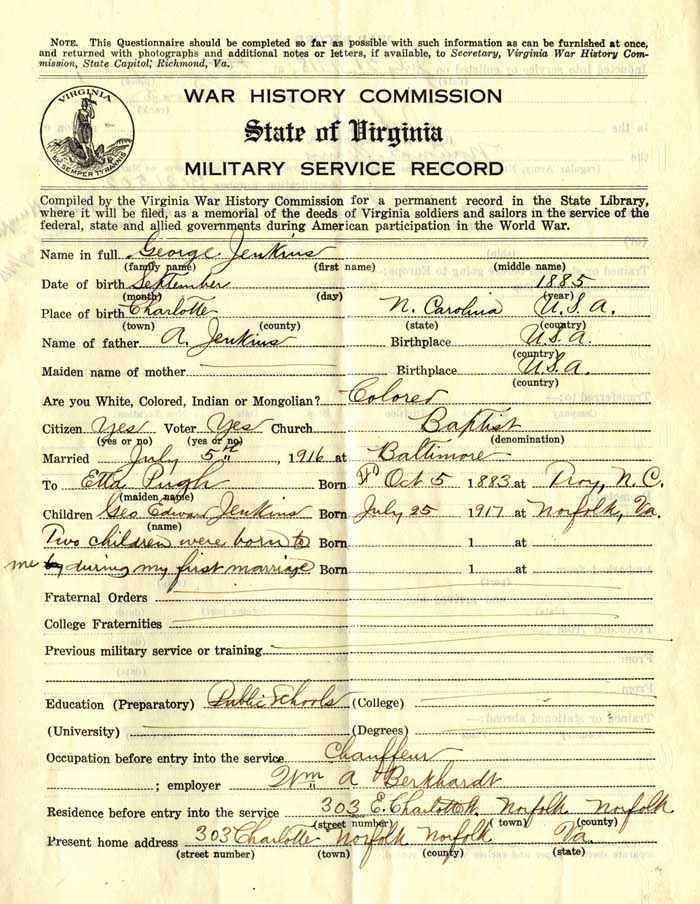 NOTE. This Questionnaire should be completed so far as possible with such information as can be furnished at once,
and returned with photographs and additional notes or letters, if available, to Secretary, Virginia War History Com-
mission, State Capitol, Richmond, Va.
VIRGINIA
SIC SEMPER TYRANNIS
WAR HISTORY COMMISSION
State of Virginia
MILITARY SERVICE RECORD
Compiled by the Virginia War History Commission for a permanent record in the State Library,
where it will be filed, as a memorial of the deeds of Virginia soldiers and sailors in the service of the
federal, state and allied governments during American participation in the World War.
Name in full George Jenkins
(family name) (first name) (middle name)
Date of birth September 1885
(month) (day) (year)
Place of birth Charlotte N. Carolina U.S.A.
(town) (county) (state) (country)
Name of father A. Jenkins Birthplace U.S.A.
(country)
Maiden name of mother Birthplace U.S.A.
(country)
Are you White, Colored, Indian or Mongolian? Colored
Citizen Yes Voter Yes Church Baptist
(yes or no) (yes or no) (denomination)
Married July 5th, 1916 at Baltimore
To Etta Pugh Born Oct 5 1883 at Troy, N.C.
(maiden name)
Children Geo Edward Jenkins Born July 25 1917 at Norfolk, Va.
(name)
Two children were born to Born 1 at
me by during my first marriage Born 1 at
Fraternal Orders
College Fraternities
Previous military service or training
Education (Preparatory) Public Schools (College)
(University) (Degrees)
Occupation before entry into the service Chauffeur
; employer Wm A Berkhardt
Residence before entry into the service 303 E. Charlotte Norfolk Norfolk
(street number) (town) (county)
Present home address 303 Charlotte Norfolk Norfolk Va.
(street number) (town) (county) (state)